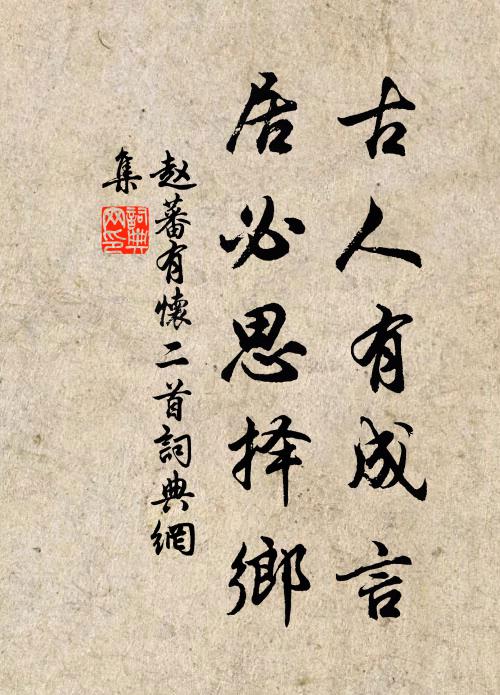 古人有成言
居必思择鄉
赵蕃有懷二首詞典網
集
詞典
网印